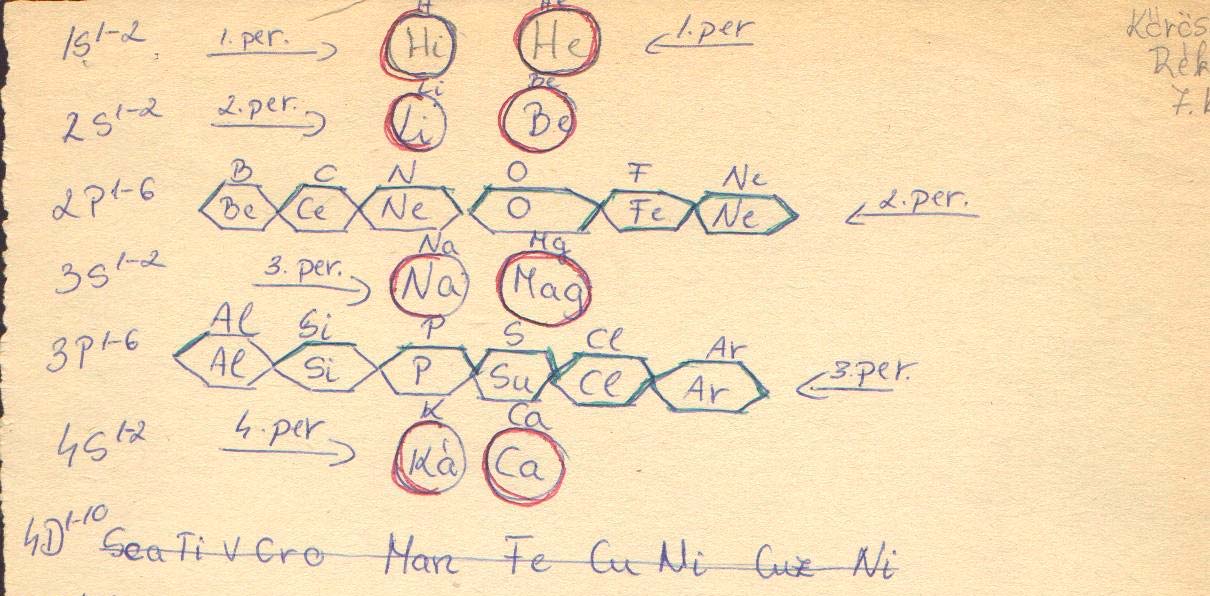 H He
1s1-2 1.per. → Hi He ← 1.per
Körös
Rék
7.
Li Be
2s1-2 2.per. → Li Be
B C N O F Ne
2p1-6 Be Ce Ne O Fe Ne ← 2.per.
Na Mg
3s1-2 3.per. → Na Mag
Al Si P S Cl Ar
3p1-6 Al Si P Su Cl Ar ← 3.per.
K Ca
4s1-2 4.per → Ká Ca
4D1-10 Sca Ti V Cro Man Fe Cu Ni Cuz Ni